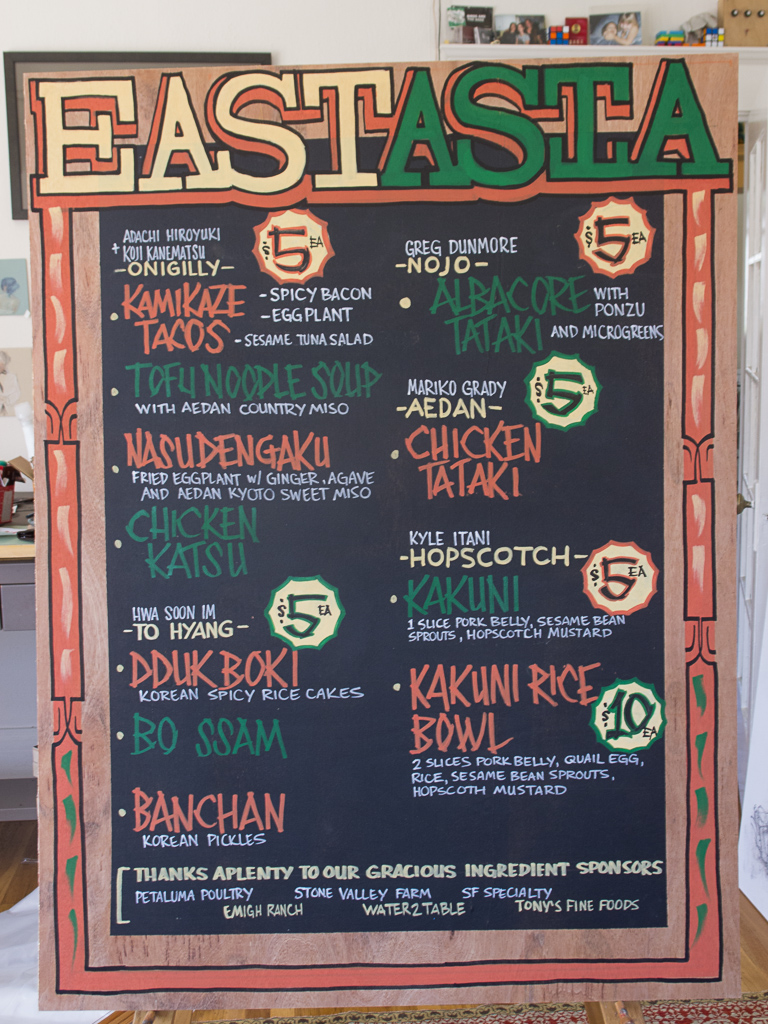 EASTASIA
ADACHI HIROYUKI
+ KOJI KANEMATSU
-ONIGILLY-
$5 EA
KAMIKAZE
TACOS
-SPICY BACON
-EGGPLANT
-SESAME TUNA SALAD
TOFU NOODLE SOUP
WITH AEDAN COUNTRY MISO
NASUDENGAKU
FRIED EGGPLANT W/ GINGER, AGAVE
AND AEDAN KYOTO SWEET MISO
CHICKEN
KATSU
HWA SOON IM
-TO HYANG-
$5 EA
DDUK BOKI
KOREAN SPICY RICE CAKES
BO SSAM
BANCHAN
KOREAN PICKLES
GREG DUNMORE
-NOJO-
$5 EA
ALBACORE
TATAKI
WITH
PONZU
AND MICROGREENS
MARIKO GRADY
-AEDAN-
$5 EA
CHICKEN
TATAKI
KYLE ITANI
-HOPSCOTCH-
$5 EA
KAKUNI
1 SLICE PORK BELLY, SESAME BEAN
SPROUTS, HOPSCOTCH MUSTARD
KAKUNI RICE
BOWL
$10 EA
2 SLICES PORK BELLY, QUAIL EGG,
RICE, SESAME BEAN SPROUTS,
HOPSCOTH MUSTARD
THANKS APLENTY TO OUR GRACIOUS INGREDIENT SPONSORS
PETALUMA POULTRY STONE VALLEY FARM SF SPECIALTY
EMIGH RANCH WATER2TABLE TONY'S FINE FOODS